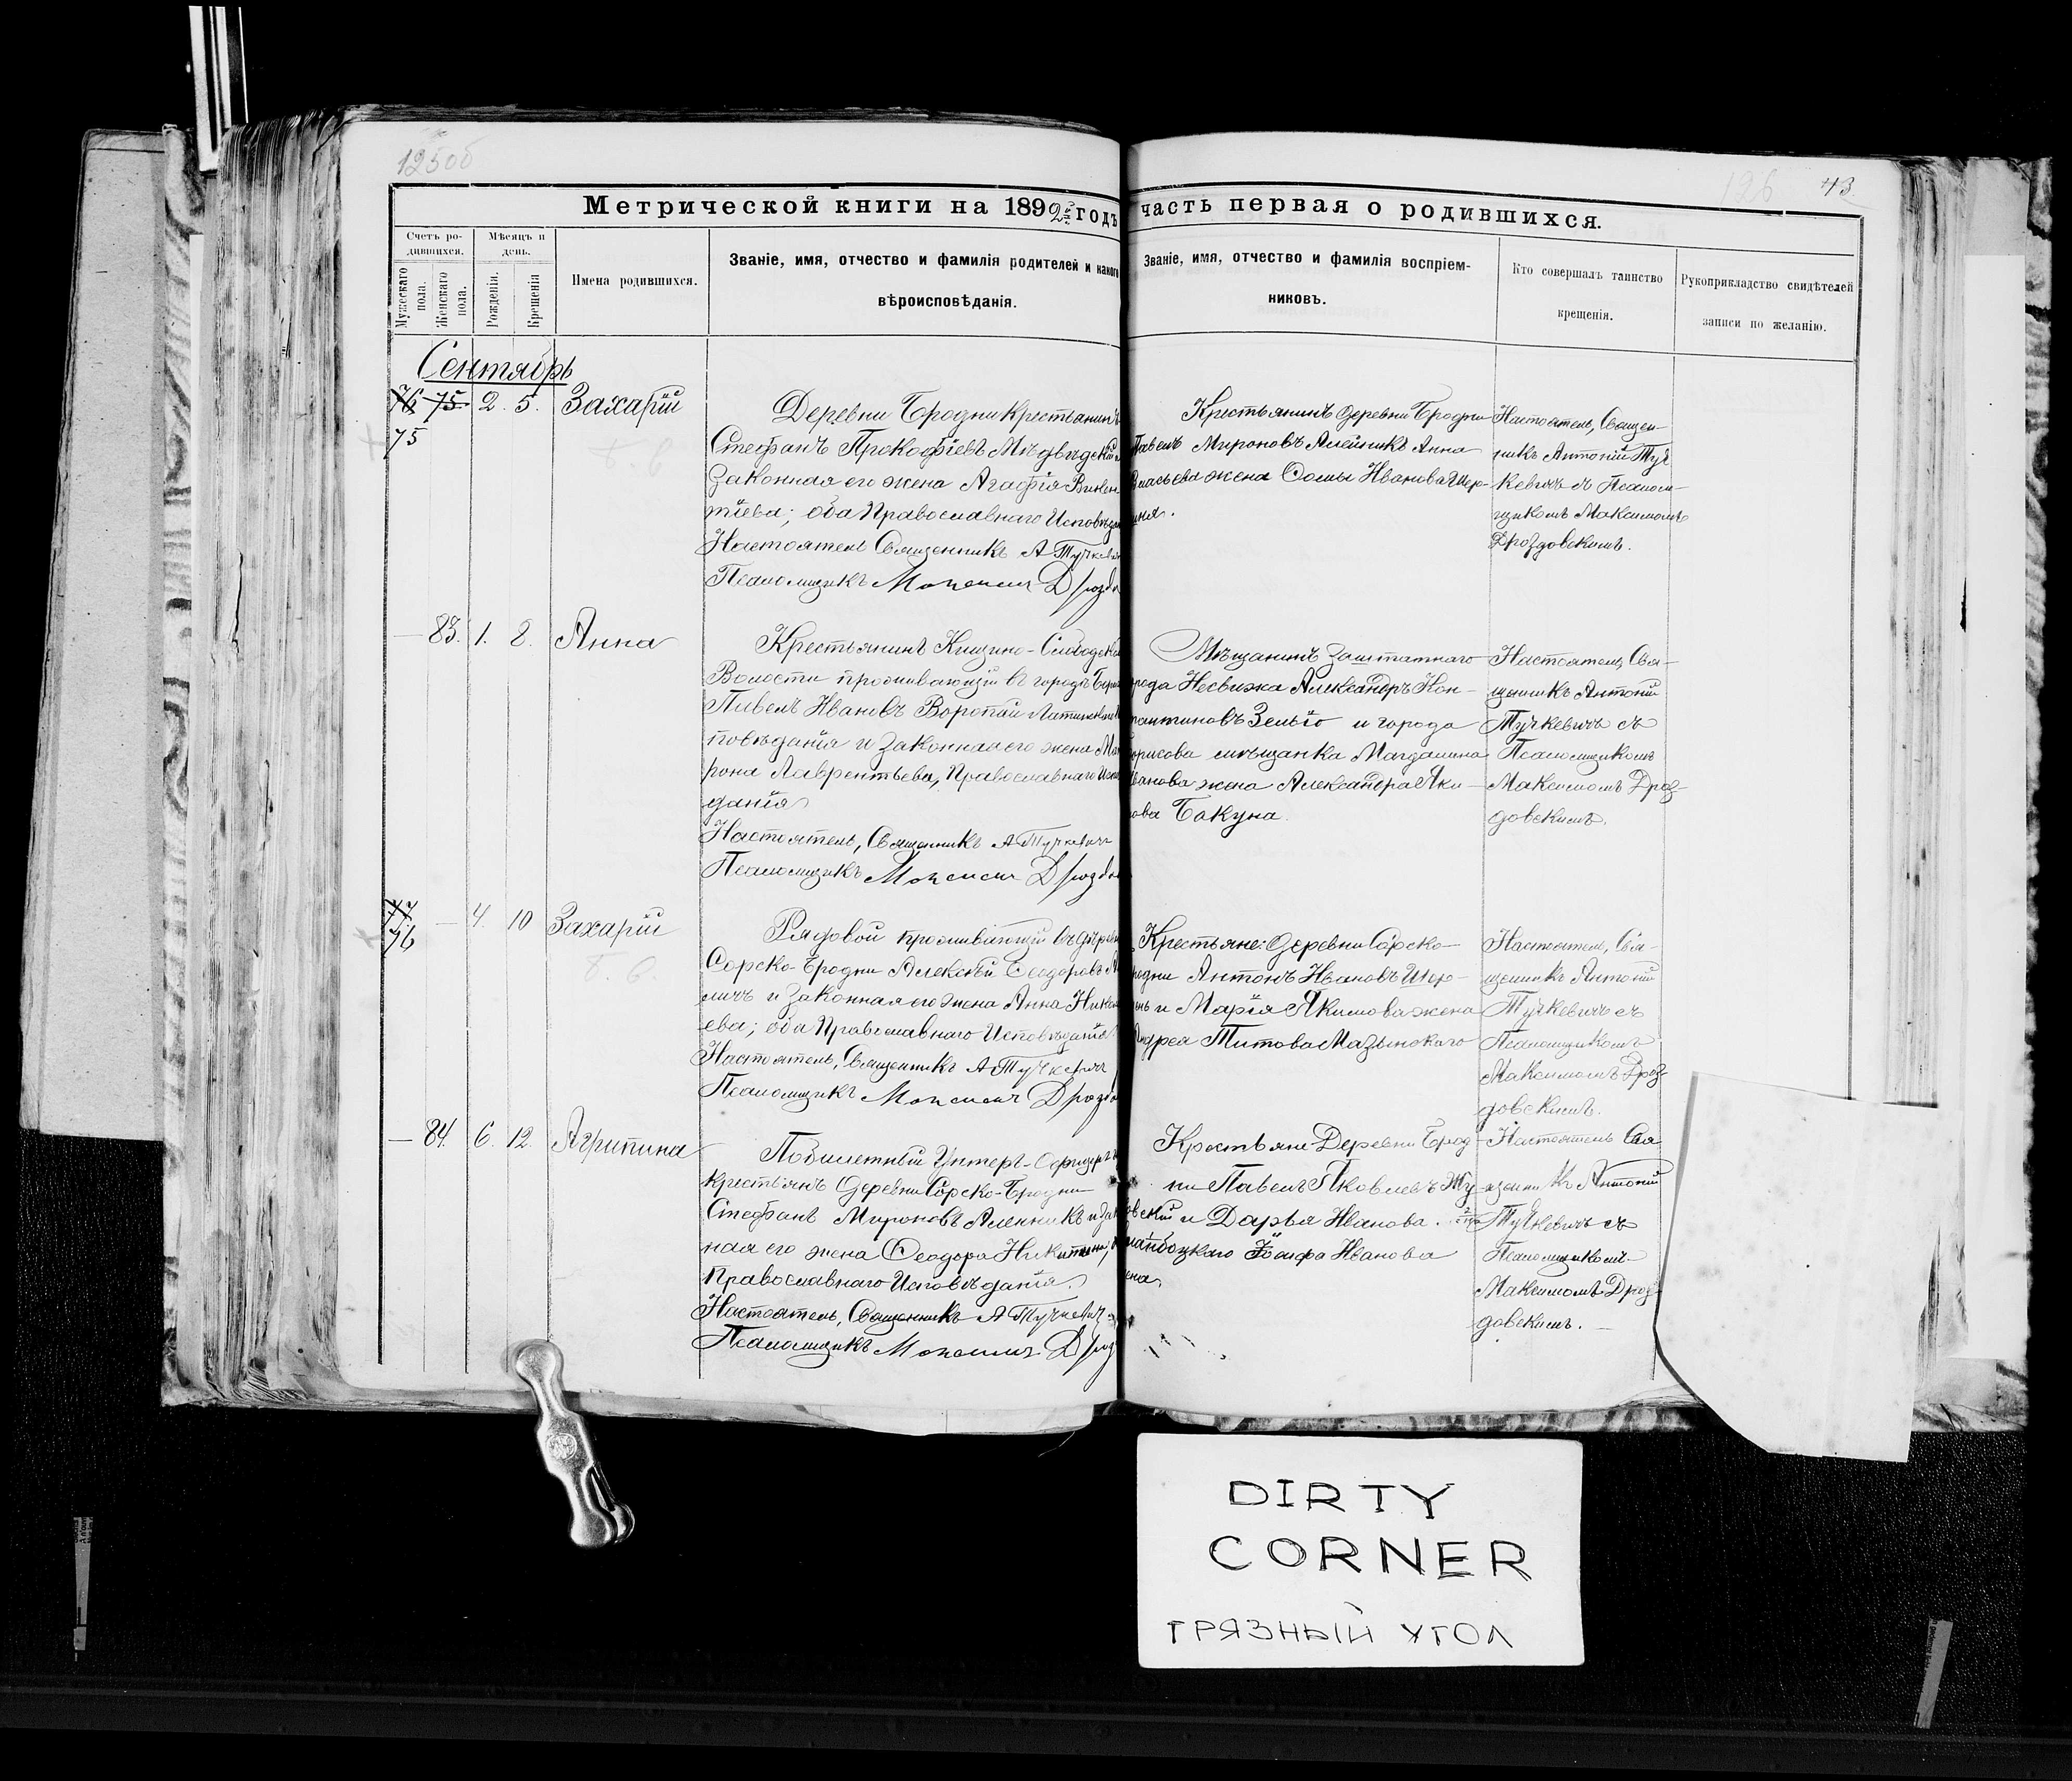 125об
126 43
Метрической книги на 1892й годъ часть первая о родившихся.
Счетъ родившихся.
Мужескаго пола.
Женскаго пола.
Мѣсяцъ и день.
Рожденія.
Крещенія
Имена родившихся.
Званіе, имя, отчество и фамилія родителей и какого
вѣроисповѣданія.
Званіе, имя, отчество и фамилія воспріем-
никовъ.
Кто совершалъ таинство
крещенія.
Рукоприкладство свидѣтелей
записи по желанію.
Сентябрь
76 75 2. 5. Захарій
75
Деревни Бродни Крестьянинъ
Стефанъ Прокофіевъ Мѣдвѣдскій
Законная его жена Агафія Викен
тіева; оба Православнаго Исповѣдан
Настоятель Священникъ А Тучкевич
Псаломщикъ Максимъ Дрозд
Крестьянинъ деревни Бродни
Павелъ Мироновъ Алейникъ Анна
Власьева жена Ѳомы Иванова Шер-
шня.
Настоятель, Священ-
никъ Антоній Туч
кевичъ съ Псалом-
щикомъ Максимомъ
Дроздовскимъ.
— 83. 1. 8. Анна
Крестьянинъ Кищино-Слободской
Волости проживающій въ городѣ Бори
Павелъ Ивановъ Воропай Латинскаго
повѣданія и Законная его жена Мат
рона Лаврентьева, Православнаго Испо
данія
Настоятель, Священникъ А Тучкевичъ
Псаломщикъ Максимъ Дрозд
Мѣщанинъ Заштатнаго
города Несвижа Александръ Кон-
стантиновъ Зельіо и города
Борисова мѣщанка Магдалина
Иванова жена Александра Яки-
мова Бакуна.
Настоятель Свя-
щенникъ Антоній
Тучкевичъ съ
Псаломщикомъ
Максимомъ Дроз-
довскимъ.
77 — 4. 10 Захарій
76
Рядовой проживающій въ деревни
Сорско-Бродни Алексѣй Ѳеодоровъ
личъ и Законная его жена Анна Никол
ева; оба Православнаго Исповѣданія
Настоятель, Священникъ А Тучкевичъ
Псаломщикъ Максимъ Дрозд
Крестьяне: деревни Сорско-
Бродни Антонъ Ивановъ Шер-
шень и Марія Якимова жена
Андрея Титова Мазынскаго
Настоятель, Свя-
щенникъ Антоній
Тучкевичъ съ
Псаломщикомъ
Максимомъ Дроз-
довскимъ.
— 84. 6. 12. Агрипина
Побилетный Унтеръ-Офицеръ
крестьянъ Деревни Сорско-Бродни
Стефанъ Мироновъ Алейникъ и Зак
ная его жена Ѳеодора Никитина;
Православнаго Исповѣданія.
Настоятель, Священникъ А Тучкевич
Псаломщикъ Максимъ Дрозд
Крестьяне Деревни Брод-
ни Павелъ Яковлевъ Жу
ковскій и Дарья Иванова.
Іосифа Иванова
жена.
Настоятель Свя
щенникъ Антоній
Тучкевичъ съ
Псаломщикомъ
Максимомъ Дроз-
довскимъ. —
DIRTY
CORNER
ГРЯЗНЫЙ УГОЛ